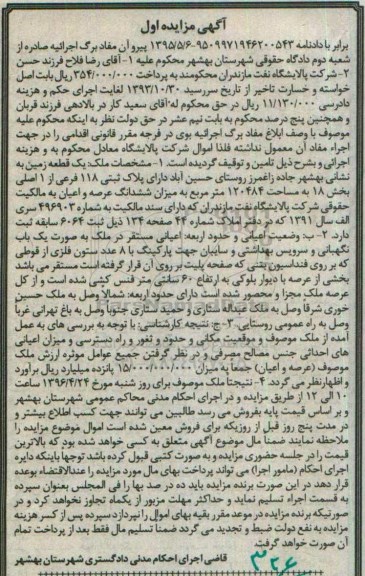 آگهی مزایده اول
برابر با دادنامه ۹۵۰۹۹۷۱۹۴۶۲۰۰۵۴۳-۱۳۹۵/۵/۶ پیرو آن مفاد برگ اجرائیه صادره از
شعبه دوم دادگاه حقوقی شهرستان بهشهر محکوم علیه ۱- آقای رضا فلاح فرزند حسن
۲- شرکت پالایشگاه نفت مازندران محکومند به پرداخت ۳۵۴/۰۰۰/۰۰۰ ریال بابت اصل
خواسته و خسارت تاخیر از تاریخ سررسید ۱۳۹۳/۱۰/۳۰ لغایت اجرای حکم و هزینه
دادرسی ۱۱/۱۳۰/۰۰۰ ریال در حق محکوم له آقای سعید کار در بالادهی فرزند قربان
و همچنین پنج درصد محکوم به بابت نیم عشر در حق دولت نظر به اینکه محکوم علیه
موصوف با وصف ابلاغ مفاد برگ اجرائیه بوی در فرجه مقرر قانونی اقدامی را در جهت
اجراء مفاد آن معمول نداشته فلذا اموال شرکت پالایشگاه معادل محکوم به و هزینه
اجرائی و بشرح ذیل تامین و توقیف گردیده است. ۱- مشخصات ملک: یک قطعه زمین به
نشانی بهشهر جاده زاغمرز روستای حسین آباد دارای پلاک ثبتی ۱۱۸ فرعی از ۱ اصلی
بخش ۱۸ به مساحت ۱۲۰۴۸۴ متر مربع به میزان ششدانگ عرصه و اعیان به مالکیت
حقوقی شرکت پالایشگاه نفت مازندران که دارای سند مالکیت به شماره ۴۹۶۹۰۳ سری
الف سال ۱۳۹۱ که در دفتر املاک شماره ۴۴ صفحه ۱۳۴ ذیل ثبت ۶۰۶۴ سابقه ثبت
دارد. ۲- ب: وضعیت اعیانی و حدود اربعه: اعیانی مستقر در ملک به صورت یک باب
نگهبانی و سرویس بهداشتی و سایبان جهت پارکینگ با ۸ عدد ستون فلزی از قوطی
که بر روی فنداسیون بتنی که صفحه پلیت بر روی آن قرار گرفته است مستقر می باشد
بخشی از عرصه با دیوار بلوکی به ارتفاع ۶۰ سانتی متر فنس کشی شده است و از کل
عرصه ملک مجزا و محصور شده است دارای حدود اربعه: شمالا وصل به ملک حسین
خوری شرقا وصل به ملک عبداله ستاری و حمید ستاری جنوبا وصل به باغ تهرانی غربا
وصل به راه عمومی روستایی. ۳- ج: نتیجه کارشناسی: با توجه به بررسی های به عمل
آمده از ملک موصوف و موقعیت مکانی و حدود و ثغور و راه دسترسی و میزان اعیانی
های احداثی جنس مصالح مصرفی و در نظر گرفتن جمیع عوامل موثره ارزش ملک
موصوف (عرصه و اعیان) جمعا به میزان ۱۵/۰۰۰/۰۰۰/۰۰۰ پانزده میلیارد ریال برآورد
و اظهارنظر می گردد. ۴- نتیجتا ملک موصوف برای روز شنبه مورخ ۱۳۹۶/۴/۲۴ ساعت
۱۰ الی ۱۲ از طریق مزایده و در اجرای احکام مدنی محاکم عمومی شهرستان بهشهر
و بر اساس قیمت پایه بفروش می رسد طالبین می توانند جهت کسب اطلاع بیشتر و
در مدت پنج روز قبل از روزیکه برای فروش معین شده است اموال موضوع مزایده را
ملاحظه نمایند ضمنا مال موضوع آگهی متعلق به کسی خواهد شده بود که بالاترین
قیمت را در جلسه حضوری مزایده و به صورت کتبی قبول کرده باشد توجها باینکه دایره
اجرای احکام (مامور اجرا) می تواند پرداخت بهای مال مورد مزایده را عندالاقتضاء بوعده
قرار دهد در این صورت برنده مزایده باید ده در صد بها را فی المجلس بعنوان سپرده
به قسمت اجراء تسلیم نماید و حداکثر مهلت مزبور از یکماه تجاوز نخواهد کرد و در
صورتیکه برنده مزایده در موعد مقرر بقیه بهای اموال را نپردازد سپرده پس از کسر هزینه
مزایده به نفع دولت ضبط و تجدید می گردد ضمنا تسلیم مال فقط بعد از پرداخت تمام
آن صورت خواهد گرفت.
قاضی اجرای احکام مدنی دادگستری شهرستان بهشهر
۳۲۶